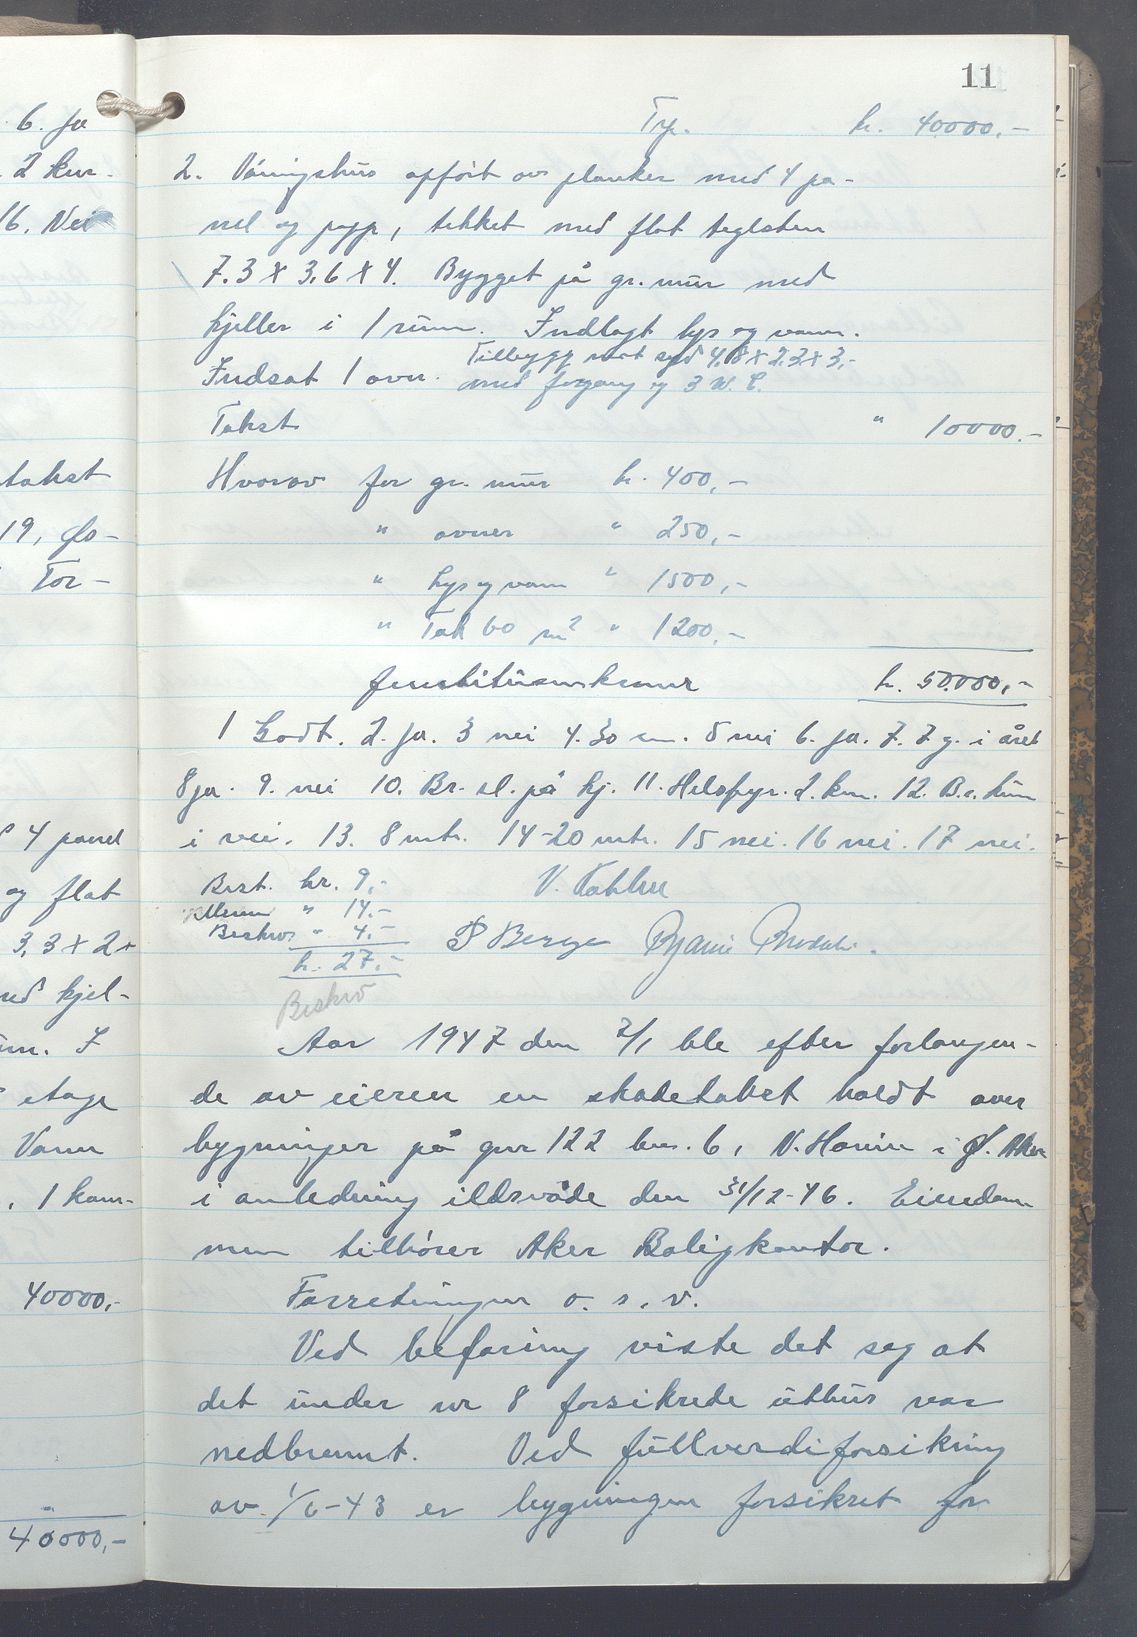 6. Ja
2 km.
16. Nei
takst
19, Øs-
Tor-
4 panel
og flat
3,3 x 2 x
med kjel-
I
etage
Vann
, 1 kam-
40000,-
"
40000,-
11
Trp. kr. 40000.-
2. Våningshus opført av planker med 4 pa-
nel og papp, tekket med flat teglsten
7.3 x 3,6 x 4. Bygget på gr. mur med
kjeller i 1 rum. Indlagt lys og vann.
Tilbygg mot syd 4,8 x 2,3 x 3,-
Indsat 1 ovn. med forgang og 3 W.C.
Takst " 10000.-
Hvorav for gr. mur kr. 400,-
" ovner " 250,-
" Lys og vann " 1500,-
" Tak 60 m² " 1200,-
kr. 50.000,-
1 Godt. 2. Ja. 3 nei 4. 30 cm. 5 nei 6. ja. 7. 2 g. i året
8 ja. 9. nei 10. Br. sl. på kj. 11. Helsfyr. 2. km. 12. Br. kum
i vei. 13. 8 mtr. 14-20 mtr. 15 nei. 16 nei. 17 nei.
Best. kr. 9,-
" 14.-
Beskrev " 4.-
kr. 27.-
P Berge Bjarne
Beskrev
Aar 1947 den 2/1 ble efter forlangen-
de av eieren en skadetakst holdt over
bygninger på gnr 122 bnr. 6, N. Høvin i Ø. Aker
i anledning ildsvåde den 31/12-46. Eiendom-
men tilhører Aker Boligkontor.
Forretningen o. s. v.
Ved befaring viste det seg at
det under nr 8 forsikrede uthus var
nedbrennt. Ved fullverdiforsikring
av 1/6-43 er bygningen forsikret for